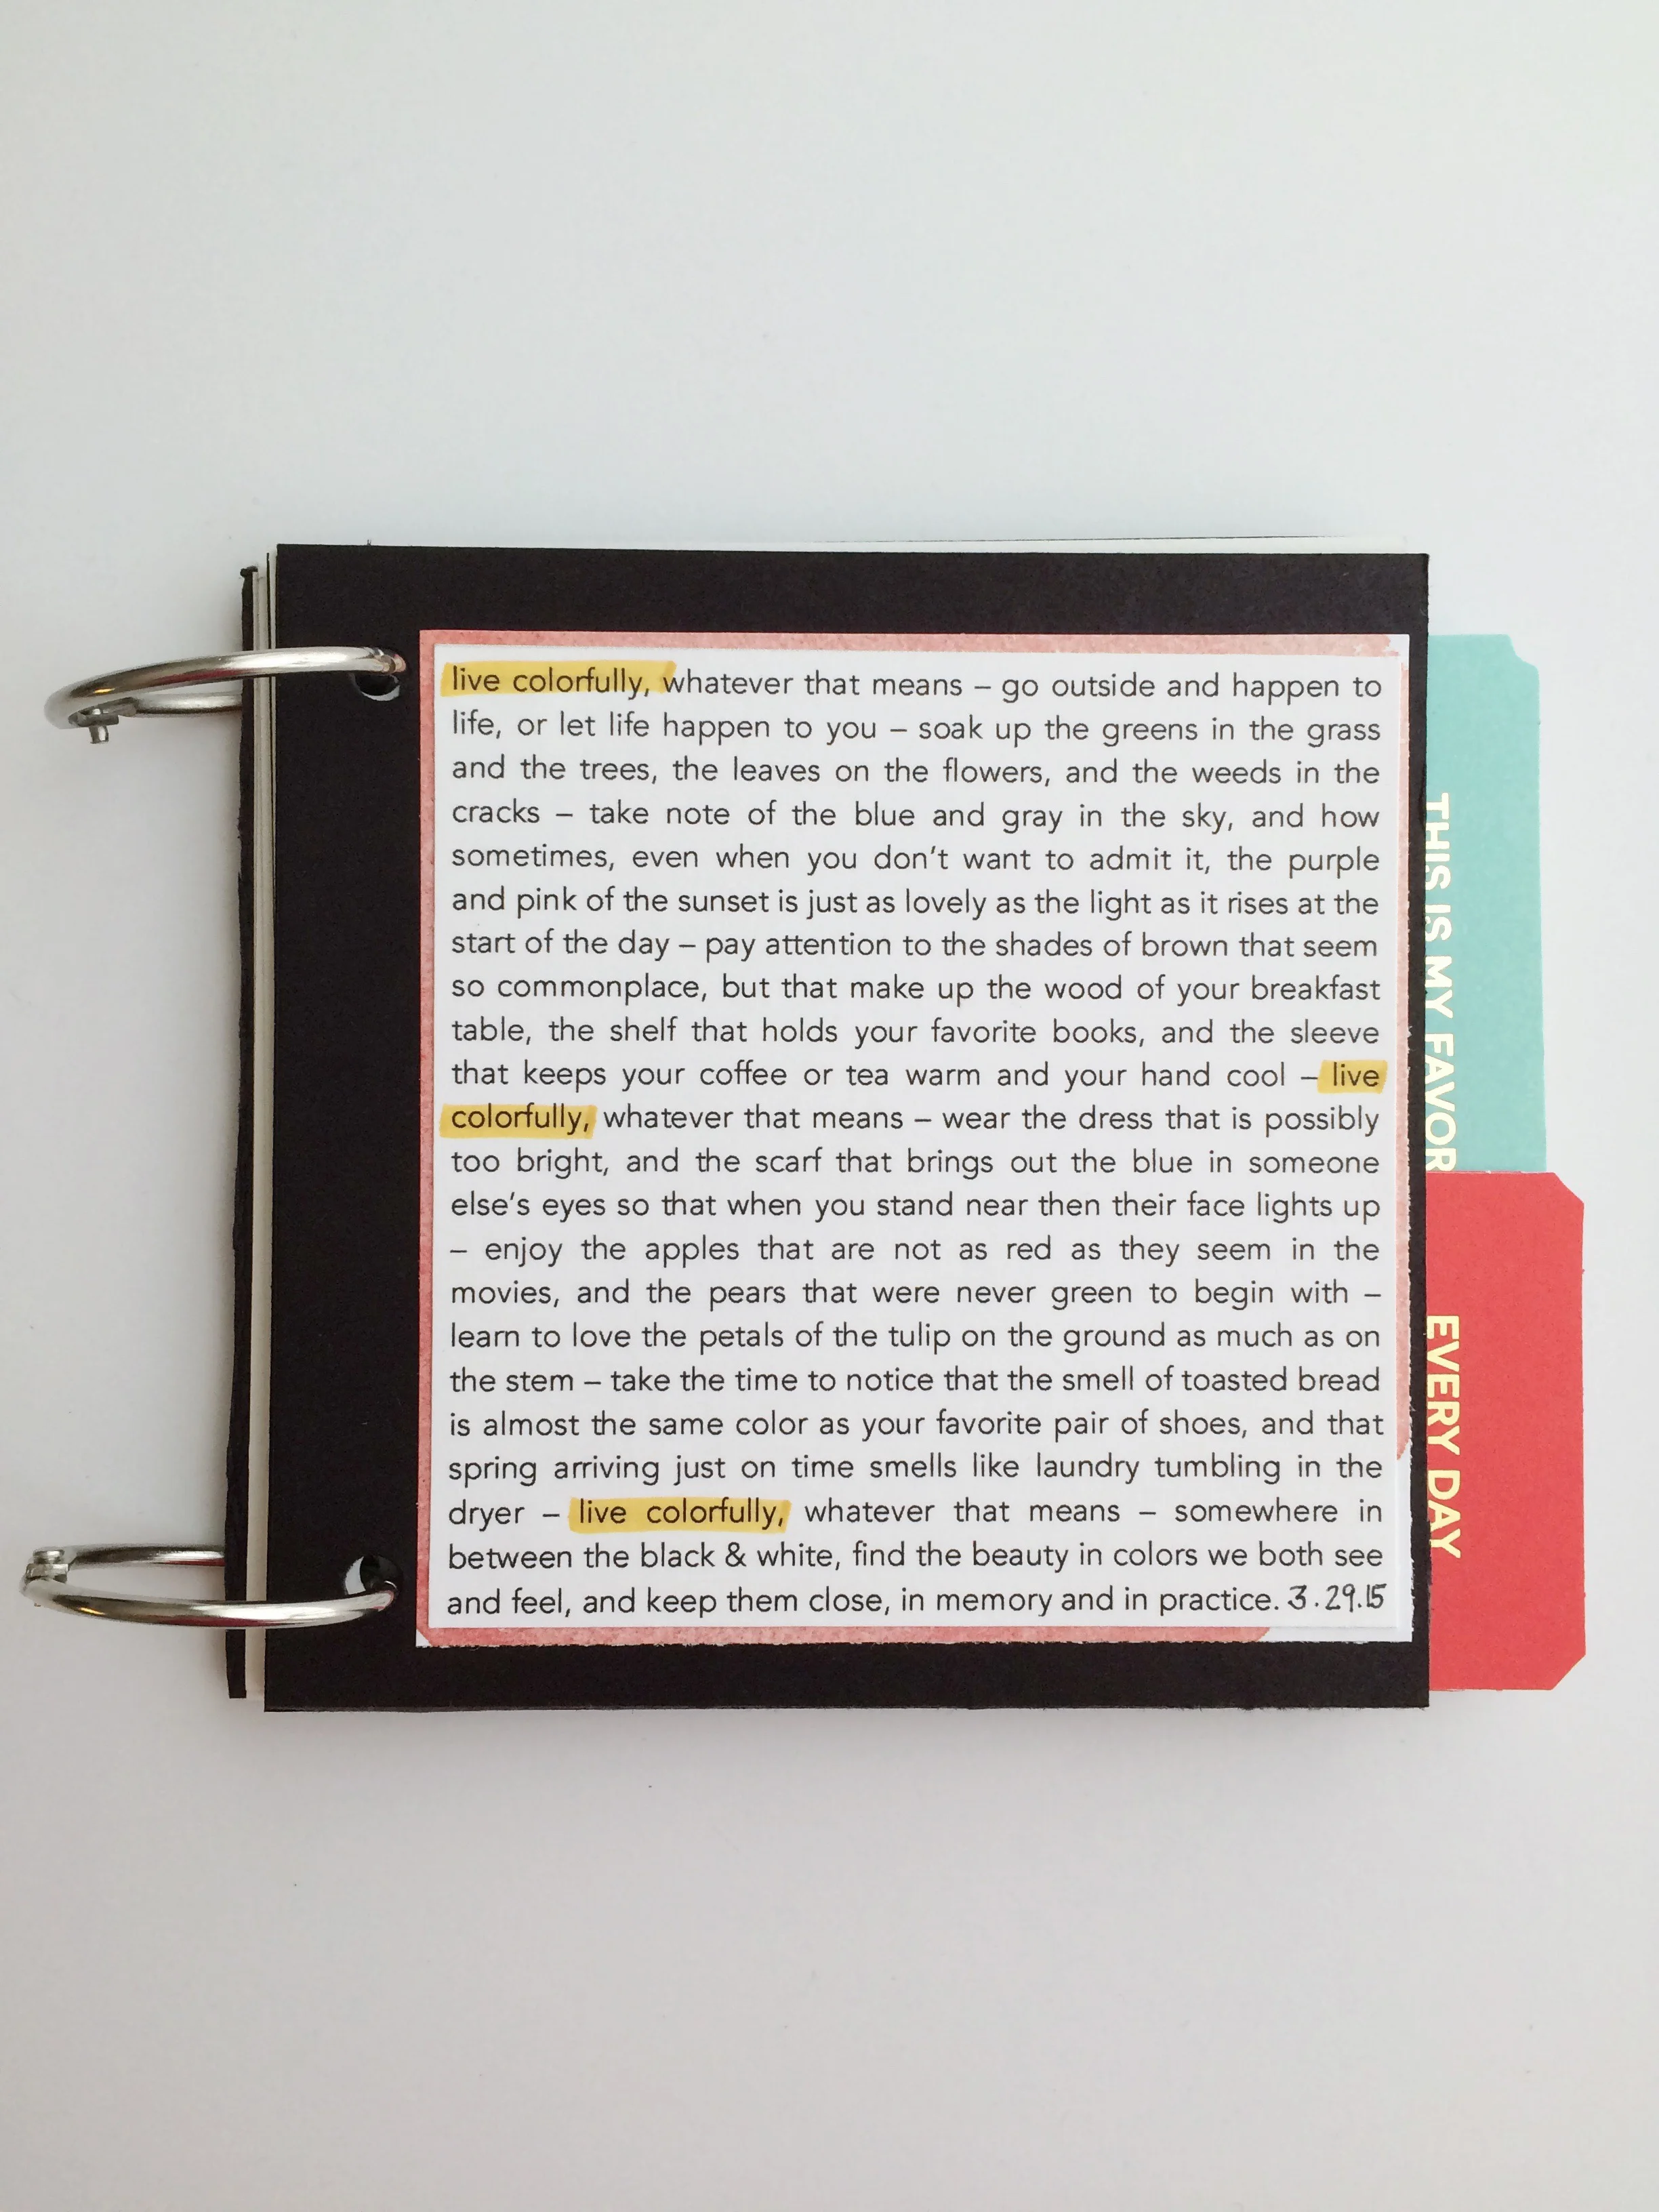 live colorfully, whatever that means – go outside and happen to
life, or let life happen to you – soak up the greens in the grass
and the trees, the leaves on the flowers, and the weeds in the
cracks – take note of the blue and gray in the sky, and how
sometimes, even when you don't want to admit it, the purple
and pink of the sunset is just as lovely as the light as it rises at the
start of the day – pay attention to the shades of brown that seem
so commonplace, but that make up the wood of your breakfast
table, the shelf that holds your favorite books, and the sleeve
that keeps your coffee or tea warm and your hand cool – live
colorfully, whatever that means – wear the dress that is possibly
too bright, and the scarf that brings out the blue in someone
else's eyes so that when you stand near then their face lights up
– enjoy the apples that are not as red as they seem in the
movies, and the pears that were never green to begin with –
learn to love the petals of the tulip on the ground as much as on
the stem – take the time to notice that the smell of toasted bread
is almost the same color as your favorite pair of shoes, and that
spring arriving just on time smells like laundry tumbling in the
dryer – live colorfully, whatever that means – somewhere in
between the black & white, find the beauty in colors we both see
and feel, and keep them close, in memory and in practice. 3.29.15
THIS IS MY FAVOR
EVERY DAY